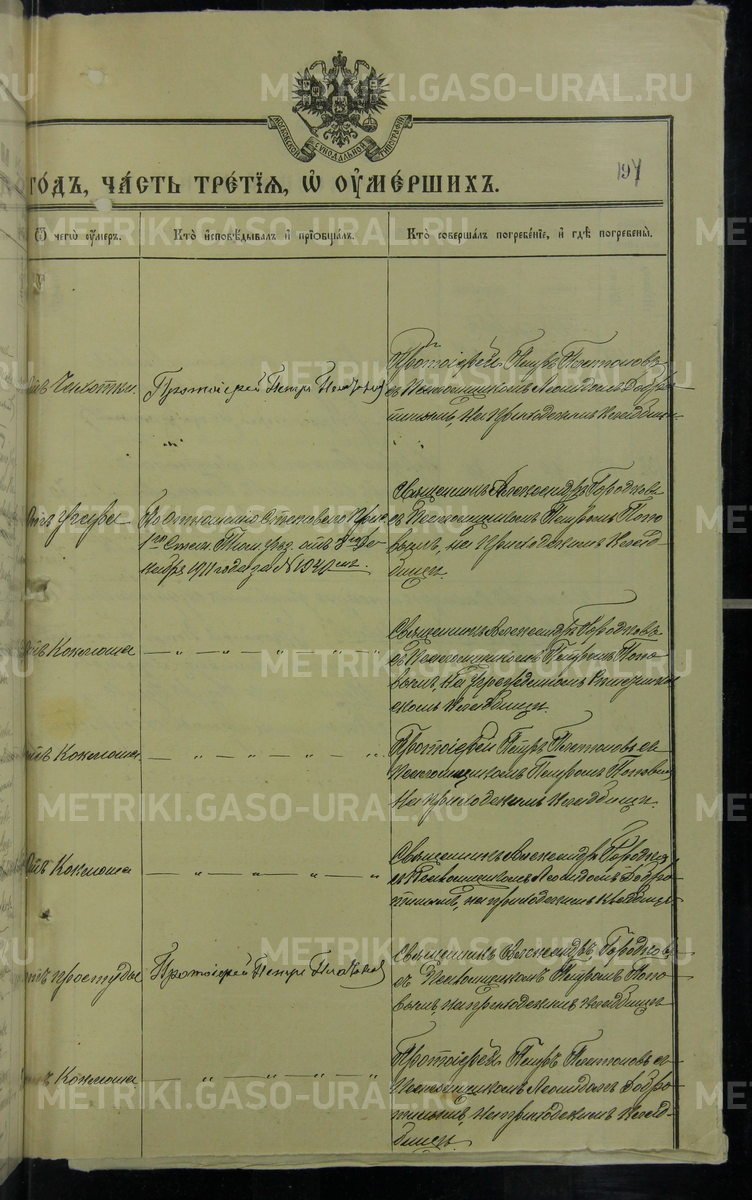 METRIKI.GASO-URAL.RU
МОСКОВСКОЙ СѴНОДАЛЬНОЙ ТИПОГРАФІИ
197
го́дъ, ча́сть тре́тїѧ, ѡ҆ ᲂу҆ме́ршихъ.
Ѿ чегѡ̀ ᲂу҆́меръ.
Кто̀ и҆сповѣ́дывалъ и҆ прїѡбща́лъ.
Кто̀ соверша́лъ погребе́нїе, и҆ гдѣ̀ погребены̀.
Отъ Чахотки.
Протоіерей Петръ Платоновъ
Протоіерей Петръ Платоновъ
съ Псаломщикомъ Леонидомъ Добро-
тинымъ, на приходскомъ кладбищѣ.
По отношенію Станового Прис.
1го Стана
1911 года за №
Священникъ Александръ Городковъ
съ Псаломщикомъ Петромъ Попо-
вымъ, на приходскомъ клад-
бищѣ.
Отъ Коклюша
— „ — „ — „ — „
Священникъ Александръ Городковъ
съ Псаломщикомъ Петромъ Попо-
вымъ, на
скомъ кладбищѣ.
Отъ Коклюша
— „ — „ — „
Протоіерей Петръ Платоновъ съ
Псаломщикомъ Петромъ Поповымъ
на приходскомъ кладбищѣ.
Отъ Коклюша
— „ — „ — „
Священникъ Александръ Городковъ
съ Псаломщикомъ Леонидомъ Добро-
тинымъ, на приходскомъ кладбищѣ
Отъ простуды
Протоіерей Петръ Платоновъ
Священникъ Александръ Городковъ
съ Псаломщикомъ Петромъ Попо-
вымъ, на приходскомъ кладбищѣ
Отъ Коклюша
— „ — „ — „ — „
Протоіерей Петръ Платоновъ съ
Псаломщикомъ Леонидомъ Добро-
тинымъ, на приходскомъ клад-
бищѣ.